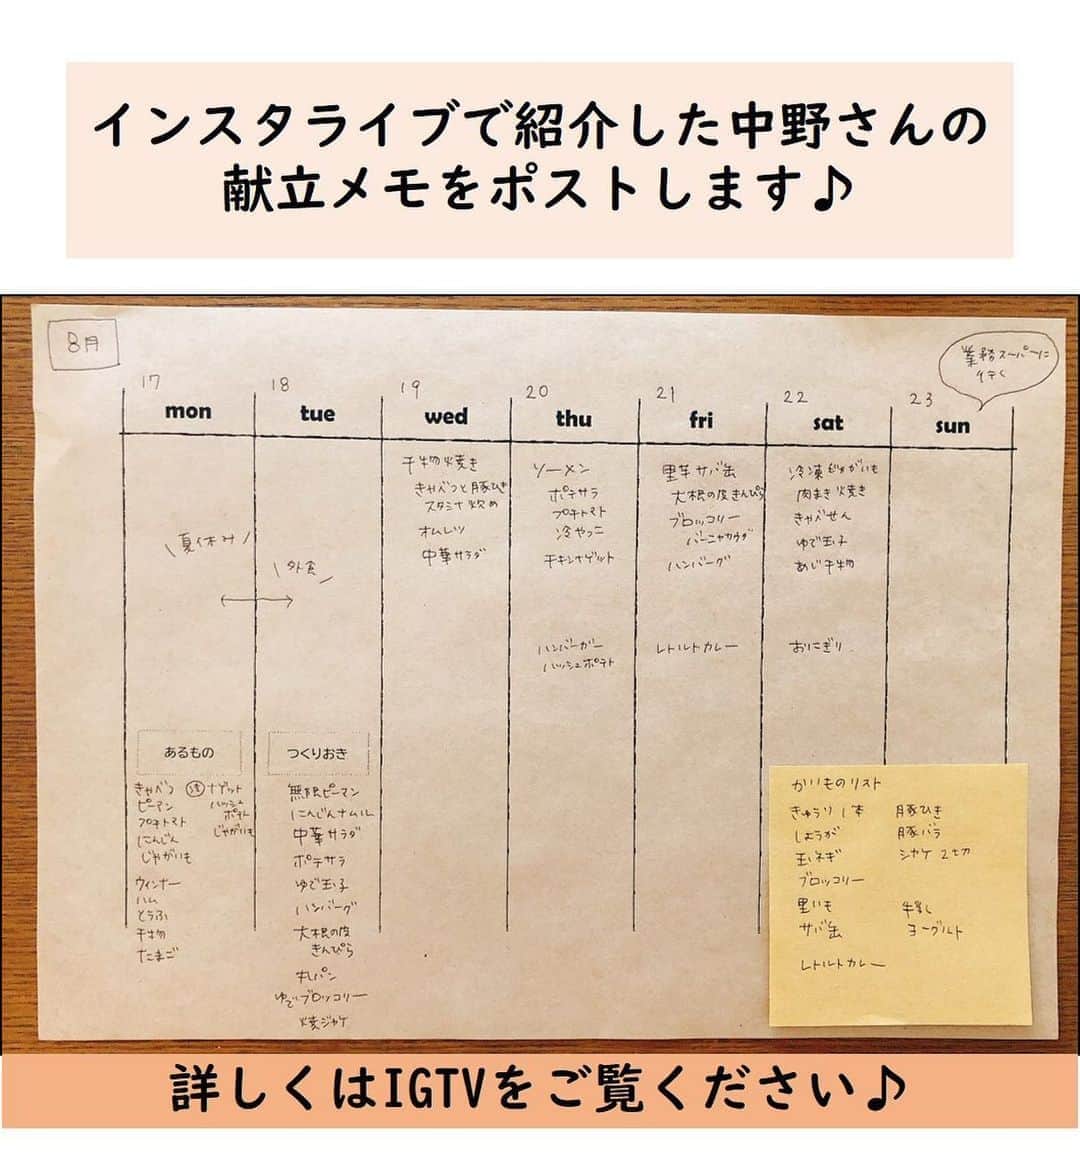 インスタライブで紹介した中野さんの
献立メモをポストします♪
8月
業務スーパーに
行く
17
mon
18
tue
19
wed
20
thu
21
fri
22
sat
23
sun
\夏休み/
\外食/
干物焼き
きゃべつと豚ひき
スタミナ炒め
オムレツ
中華サラダ
ソーメン
ポテサラ
プチトマト
冷やっこ
チキンナゲット
ハンバーガー
ハッシュポテト
里芋サバ缶
大根の皮きんぴら
ブロッコリー
バーニャカウダ
ハンバーグ
レトルトカレー
冷凍じゃがいも
肉まき焼き
きゃべせん
ゆで玉子
あじ干物
おにぎり
あるもの
きゃべつ
ピーマン
プチトマト
にんじん
じゃがいも
ウィンナー
ハム
とうふ
干物
たまご
冷 ナゲット
ハッシュ
ポテト
じゃがいも
つくりおき
無限ピーマン
にんじんナムル
中華サラダ
ポテサラ
ゆで玉子
ハンバーグ
大根の皮
きんぴら
丸パン
ゆでブロッコリー
焼ジャケ
かいものリスト
きゅうり 1本
しょうが
玉ネギ
ブロッコリー
里いも
サバ缶
レトルトカレー
豚ひき
豚バラ
シャケ 2切
牛乳
ヨーグルト
詳しくはIGTVをご覧ください♪